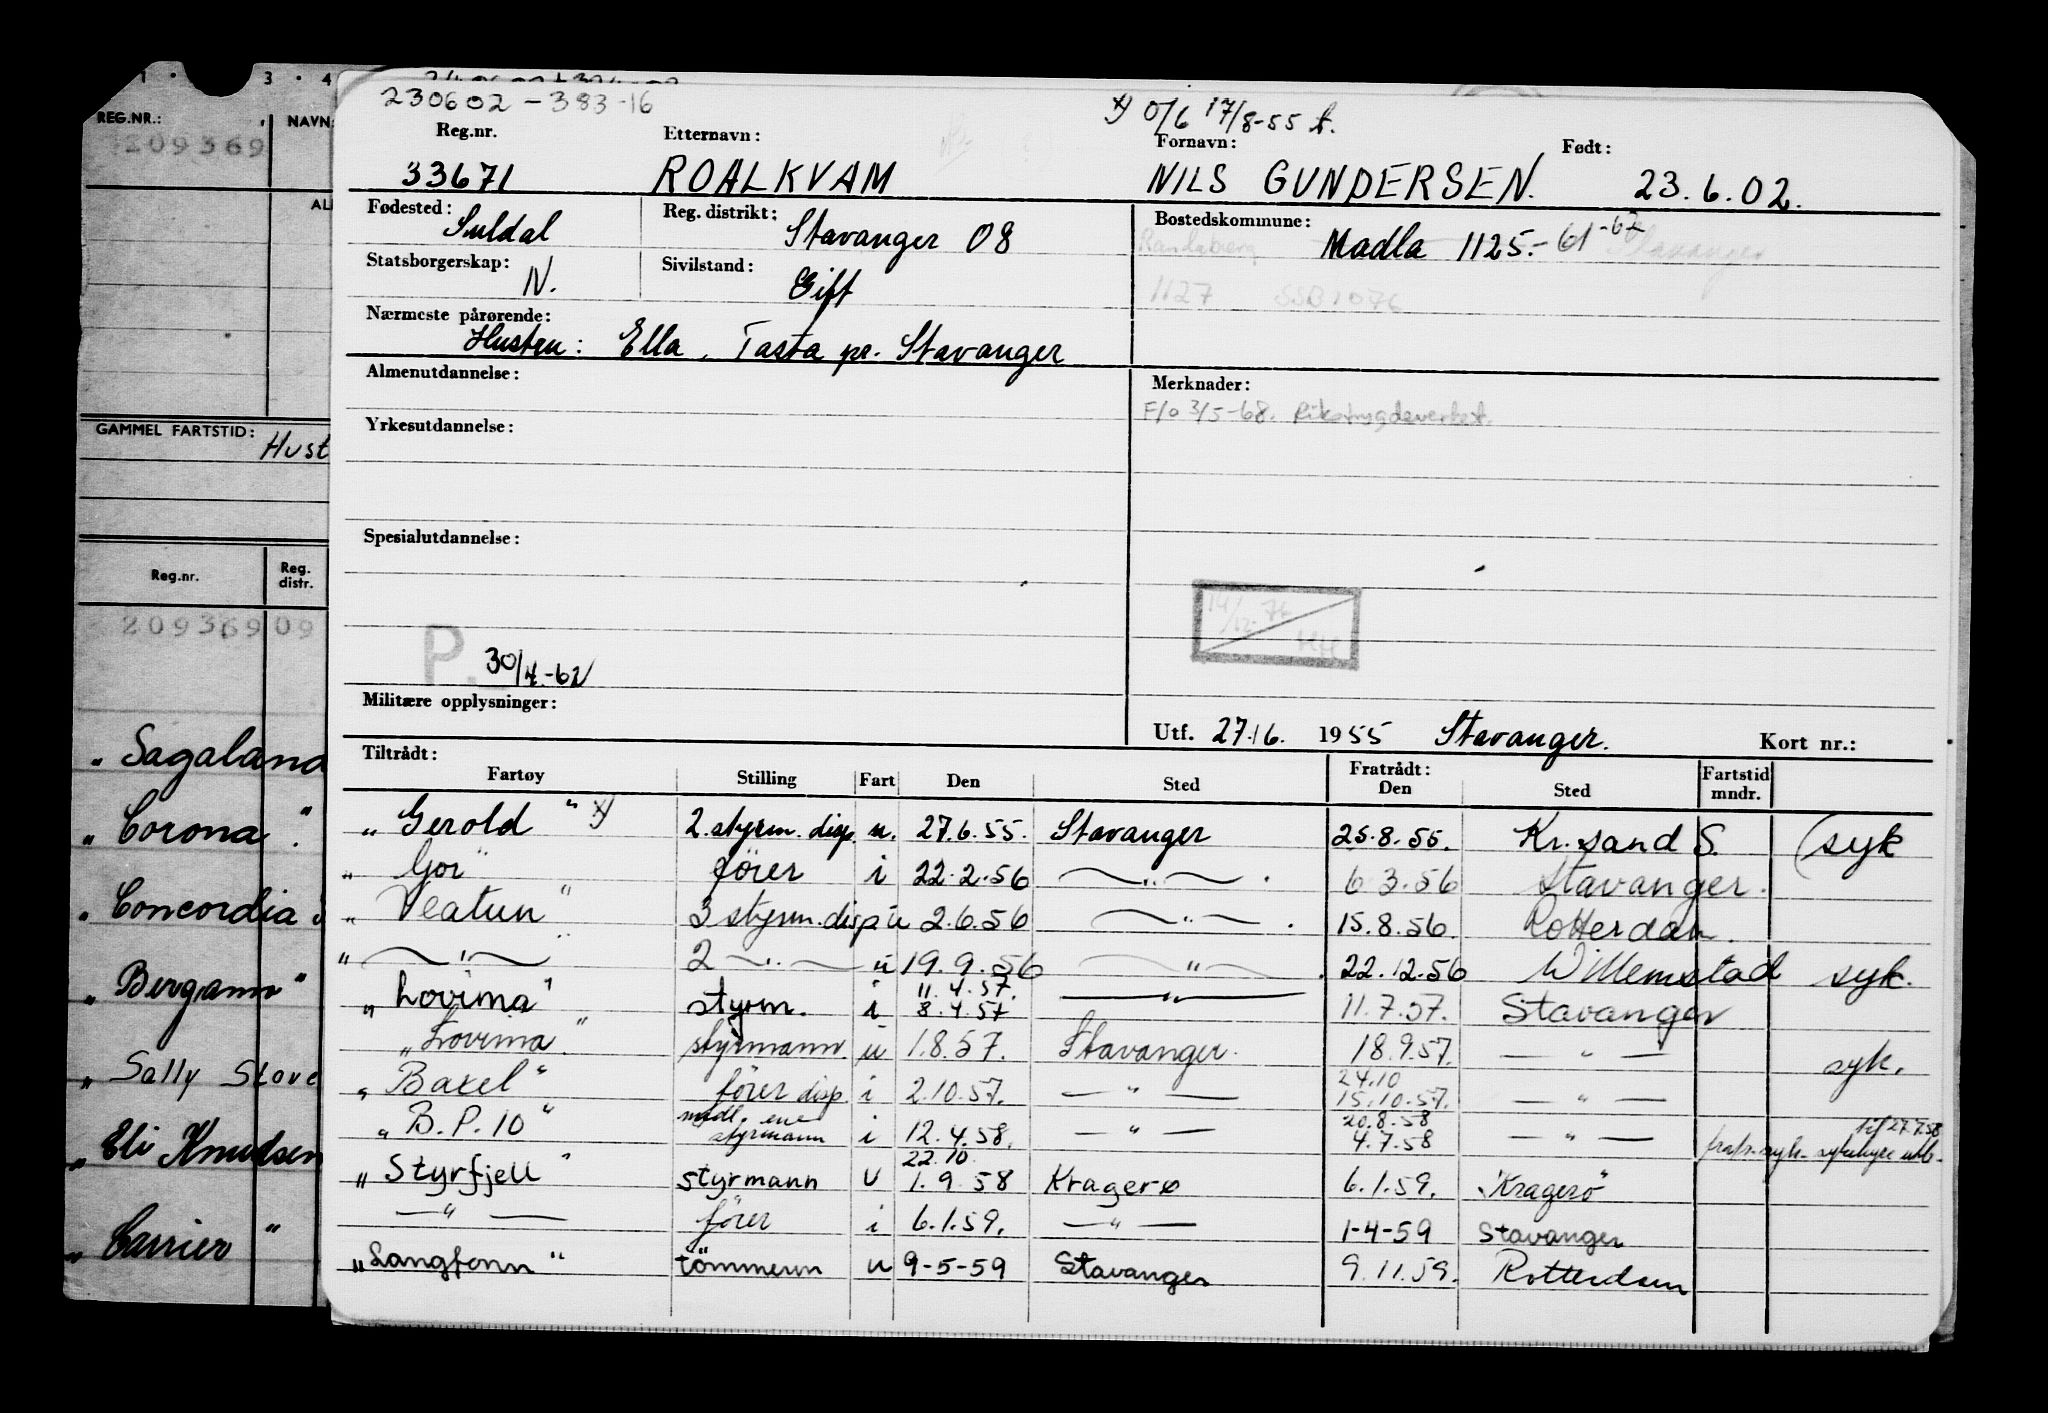 1 · 3 · 4
REG.NR.: NAVN:
209369
GAMMEL FARTSTID:
Hust
Reg.nr. Reg. distr.
209369 09
"Sagaland
"Corona".
"Concordia
"Bergann"
"Sally Stove
"Eli Knudsen
"Carrier"
230602-383-16
x) O/6 17/8-55 A.
Reg.nr. Etternavn: Fornavn: Født:
33671 ROALKVAM NILS GUNDERSEN. 23.6.02.
Fødested: Suldal Reg. distrikt: Stavanger 08 Bostedskommune: Madla 1125.- 61-62 Stavanger
Randaberg
Statsborgerskap: N. Sivilstand: Gift
1127
Nærmeste pårørende:
Hustru: Ella, Tasta pr. Stavanger
Almenutdannelse: Merknader:
F/o 3/5-68. Rikstrygdeverket.
Yrkesutdannelse:
Spesialutdannelse:
P. 30/4-62
Militære opplysninger:
Utf. 27/6. 1955 Stavanger. Kort nr.:
Tiltrådt: Fratrådt: Fartstid
Fartøy Stilling Fart Den Sted Den Sted mndr.
"Gerold" x) 2. styrm. disp. u. 27.6.55. Stavanger 25.8.55. Kr.sand S. (syk
"Gor" fører i 22.2.56 —"—. 6.3.56 Stavanger.
"Veatun" 3 styrm. disp u 2.6.56 —"—. 15.8.56. Rotterdam.
"—"— 2 —"— u 19.9.56 —"—. 22.12.56 Willemstad syk.
11.4.57.
"Lovima" styrm. i 8.4.57 —"— 11.7.57. Stavanger
"Lovima" styrmann u 1.8.57. Stavanger. 18.9.57. —"— syk.
24.10
"Baxel" fører disp. i 2.10.57. —"— 15.10.57. —"—
20.8.58 til 27.7.58
"B.P.10" styrmann i 12.4.58. —"— 4.7.58 —"—
22.10.
"Styrfjell" styrmann u 1.9.58 Kragerø 6.1.59. "Kragerö"
—"— fører i 6.1.59. —"— 1-4-59 Stavanger
"Langfonn" tömmerm u 9-5-59 Stavanger 9.11.59. Rotterdam